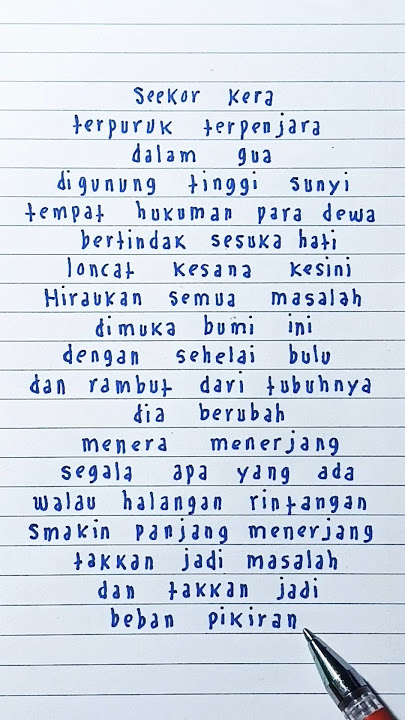 Seekor kera
terpuruk terpenjara
dalam gua
digunung tinggi sunyi
tempat hukuman para dewa
bertindak sesuka hati
loncat kesana kesini
Hiraukan semua masalah
dimuka bumi ini
dengan sehelai bulu
dan rambut dari tubuhnya
dia berubah
menera menerjang
segala apa yang ada
walau halangan rintangan
Smakin panjang menerjang
takkan jadi masalah
dan takkan jadi
beban pikiran